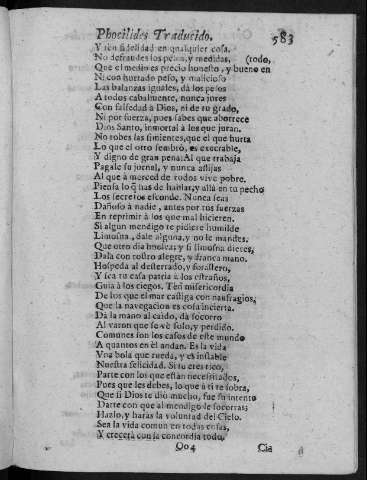 Phocilides Traducido. 583
Y ten fidelidad en qualquier cosa.
No defraudes los pesos, y medidas, (todo,
Que el medio es precio honesto, y bueno en
Ni con hurtado peso, y malicioso
Las balanzas iguales, dà los pesos
A todos cabalmente, nunca jures
Con falsedad à Dios, ni de tu grado,
Ni por fuerza, pues sabes que aborrece
Dios Santo, inmortal à los que juran.
No robes las simientes, que el que hurta
Lo que el otro sembrò, es execrable,
Y digno de gran pena: Al que trabaja
Pagale su jornal, y nunca aflijas
Al que à merced de todos vive pobre.
Piensa lo q̃ has de hablar, y allà en tu pecho
Los secretos esconde. Nunca seas
Dañoso à nadie, antes por tus fuerzas
En reprimir à los que mal hicieren.
Si algun mendigo te pidiere humilde
Limosna, dale alguna, y no le mandes,
Que otro dia buelva; y si limosna dieres,
Dala con rostro alegre, y franca mano.
Hospeda al desterrado, y forastero,
Y sea tu casa patria à los estraños,
Guia à los ciegos. Ten misericordia
De los que el mar castiga con naufragios,
Que la navegacion es cosa incierta.
Dà la mano al caido, dà socorro
Al varon que se vè solo, y perdido.
Comunes son los casos de este mundo
A quantos en èl andan. Es la vida
Vna bola que rueda, y es instable
Nuestra felicidad. Si tu eres rico,
Parte con los que estàn necessitados,
Pues que les debes, lo que à ti te sobra,
Que si Dios te diò mucho, fue su intento
Darte con que al mendigo le socorras:
Hazlo, y haràs la voluntad del Cielo.
Sea la vida comun en todas cosas,
Y crecerà con la concordia todo.
Oo4 Cia